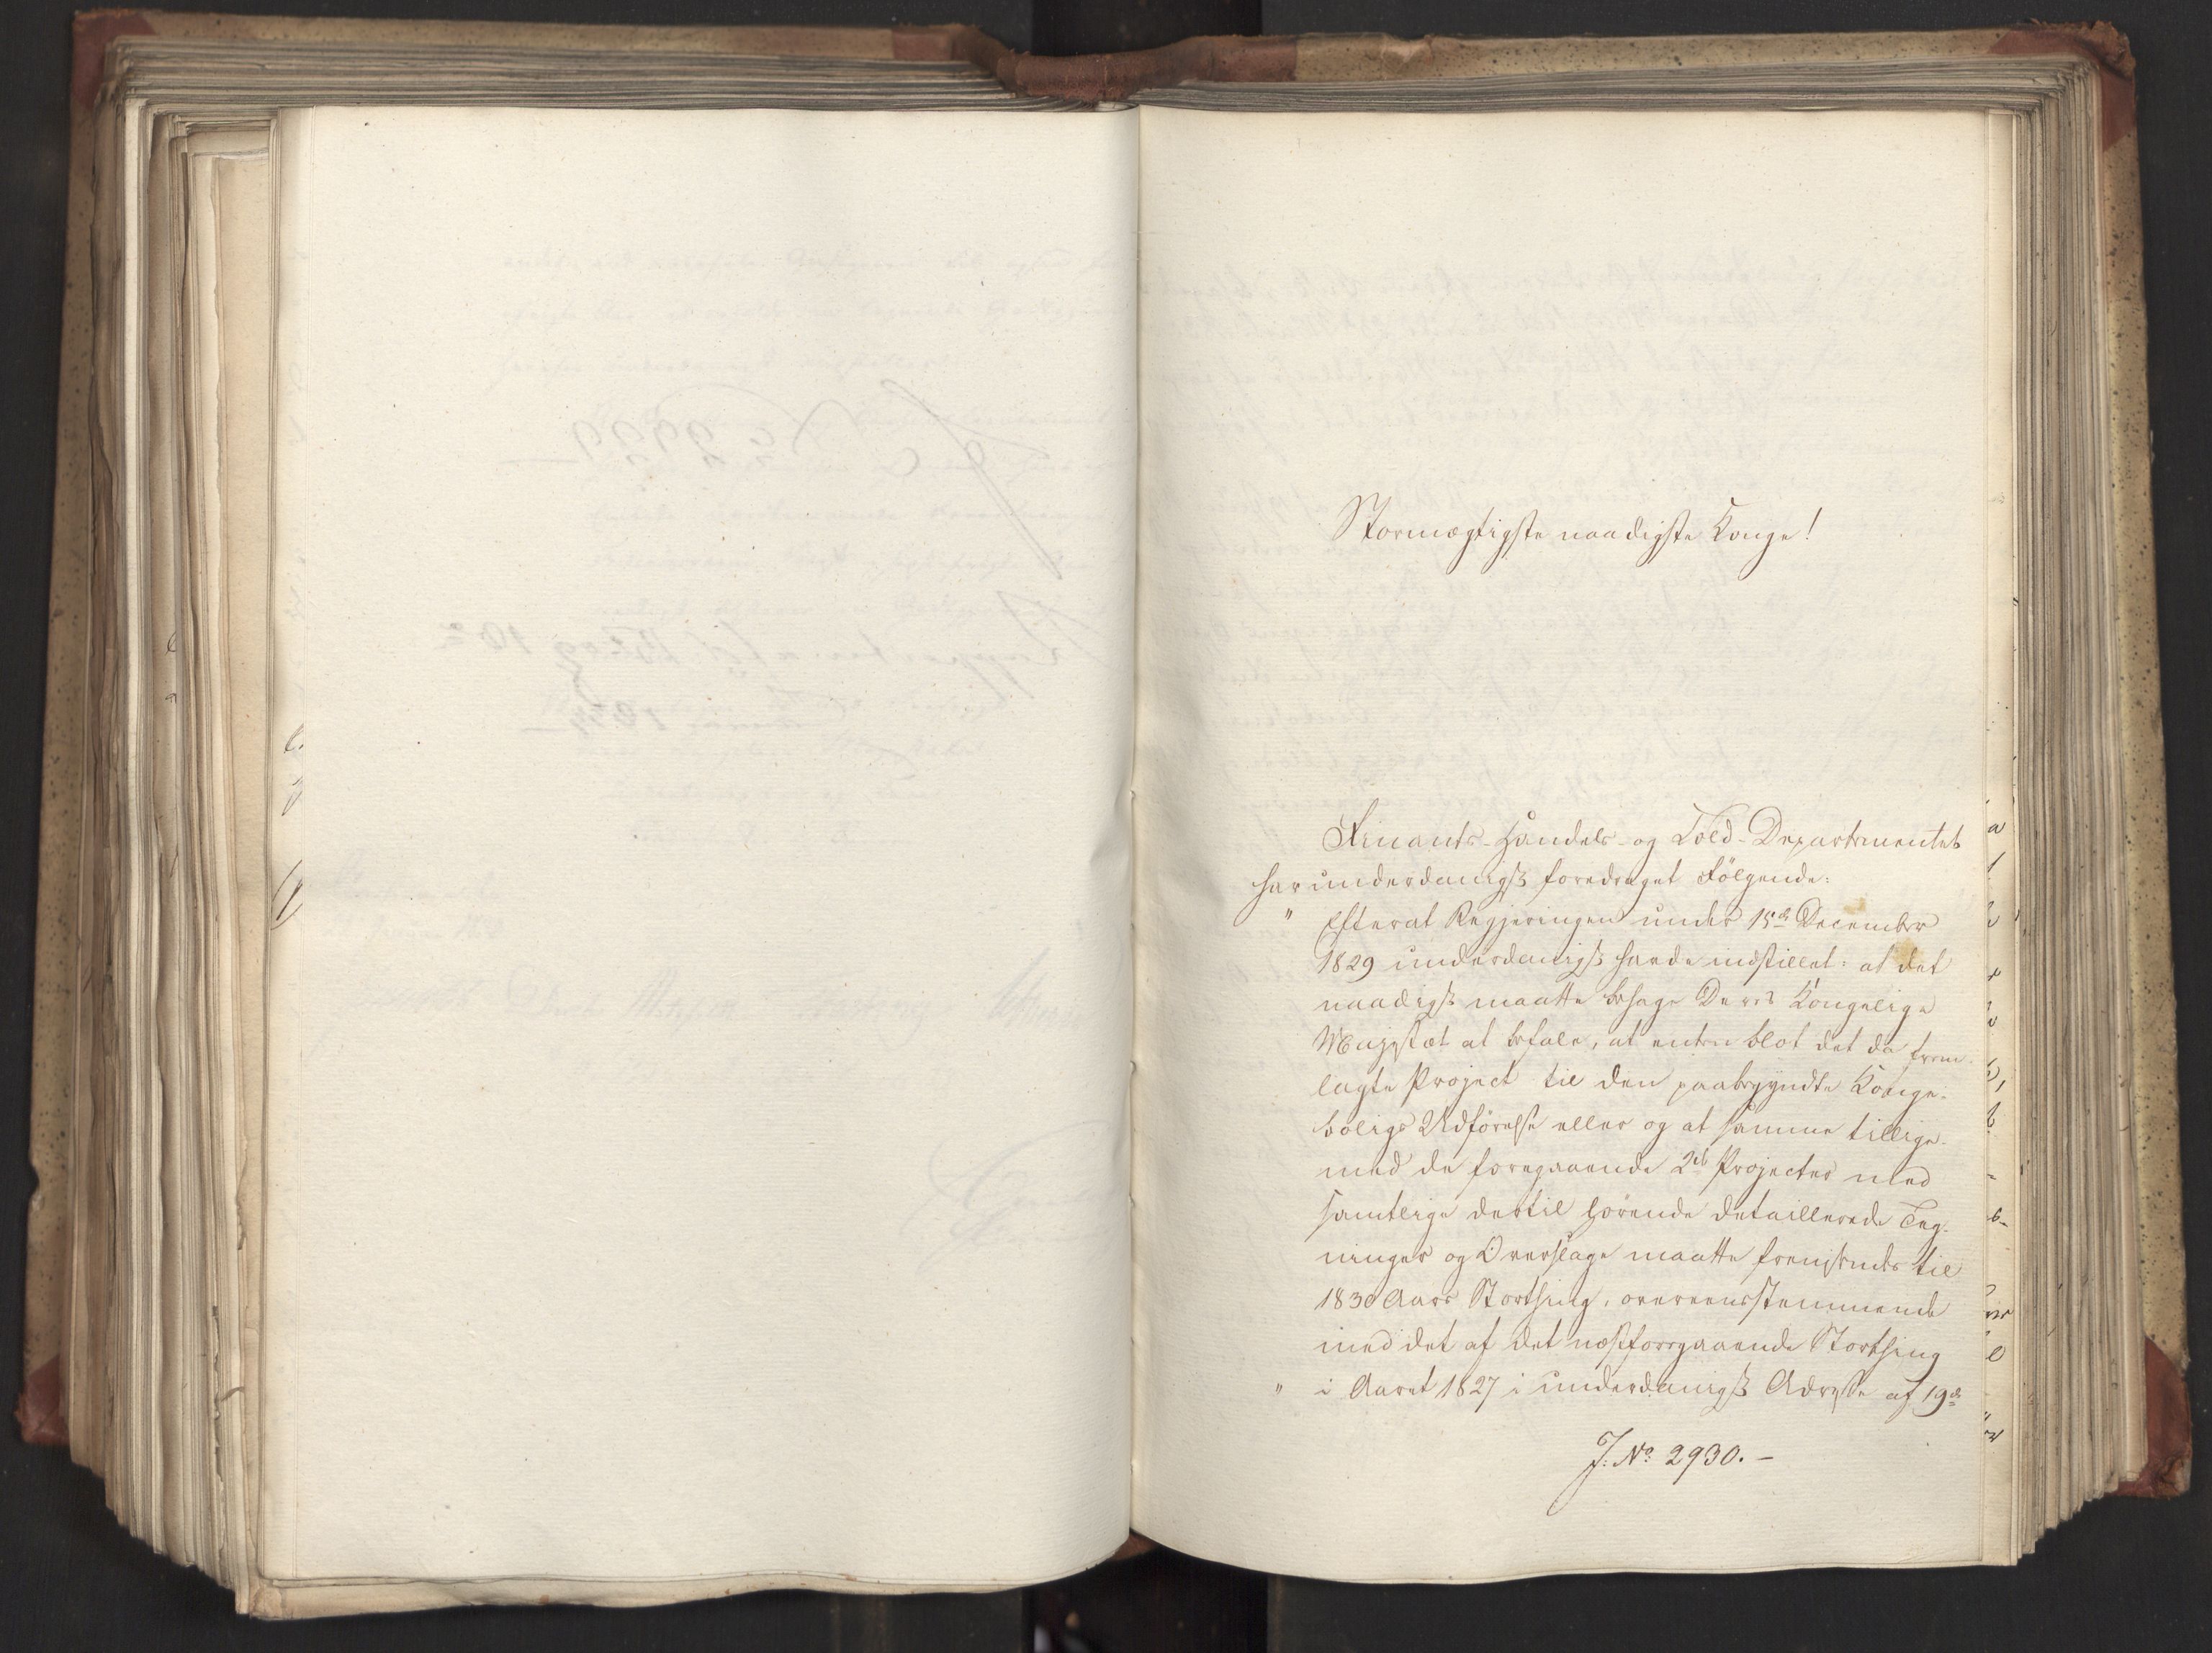 Stormægtigste naadigste Konge!
Finants- Handels- og Told-Departementet
har underdanigst foredraget Følgende:
" Efterat Regjeringen under 15de December
1829 underdanigst havde indstillet: at det
naadigst maatte behage Deres Kongelige
Majestæt at befale, at enten blot det da frem-
lagte Project til den paabegyndte Konge-
boligs Udførelse eller og at samme tillige-
med de foregaaende 2de Projecter med
samtlige dertil hørende detaillerede Teg-
ninger og Overslage maatte fremsendes til
1830 Aars Storthing, overeensstemmende
med det af det næstforegaaende Storthing
" i Aaret 1827 i underdanigst Adresse af 19de
J: No 2930. –